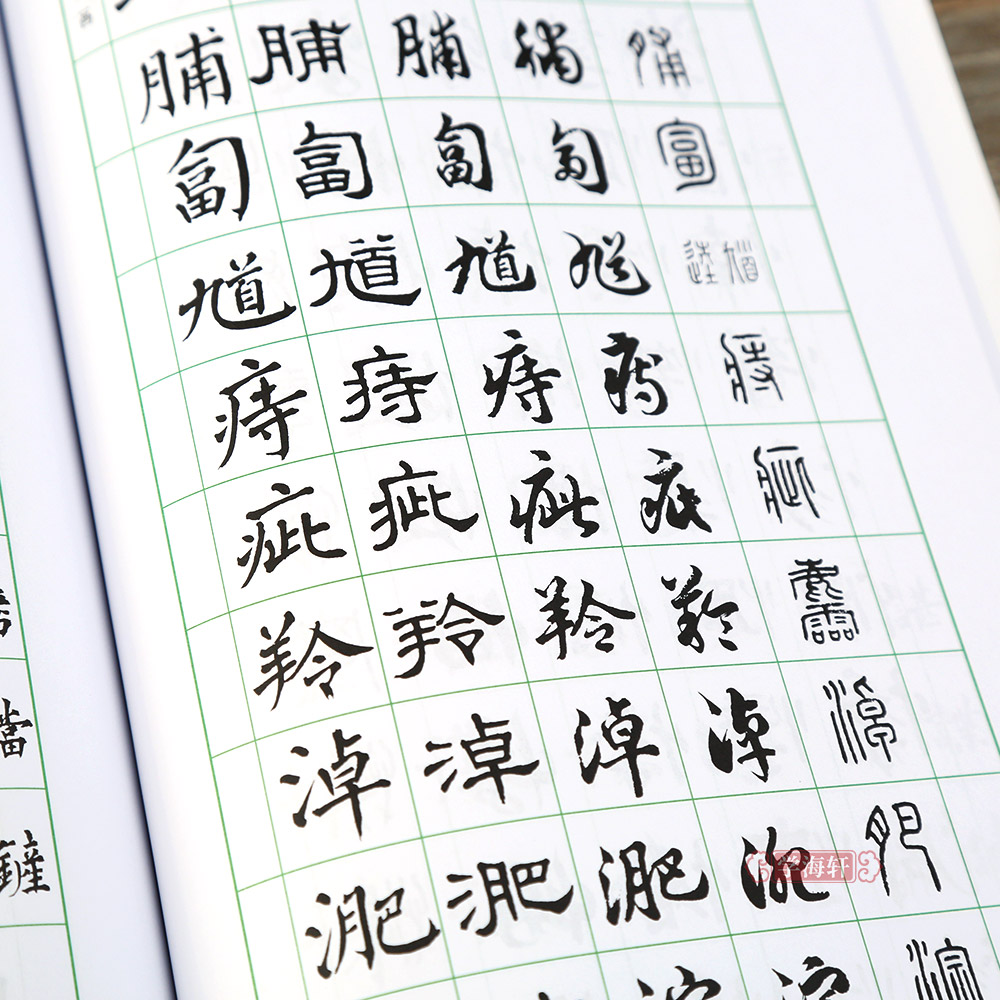 脯 脯 脯 脯 脯
匐 匐 匐 匐 匐
馗 馗 馗 馗 逵 馗
痔 痔 痔 痔 痔
疵 疵 疵 疵 疵
羚 羚 羚 羚
淖 淖 淖 淖 淖
淝 淝 淝 淝 肥
鏟
学海轩